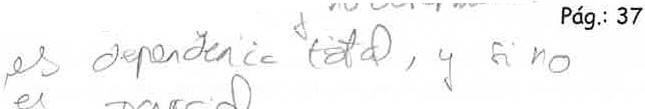 Pág.: 37
es dependencia total, y si no
es parcial